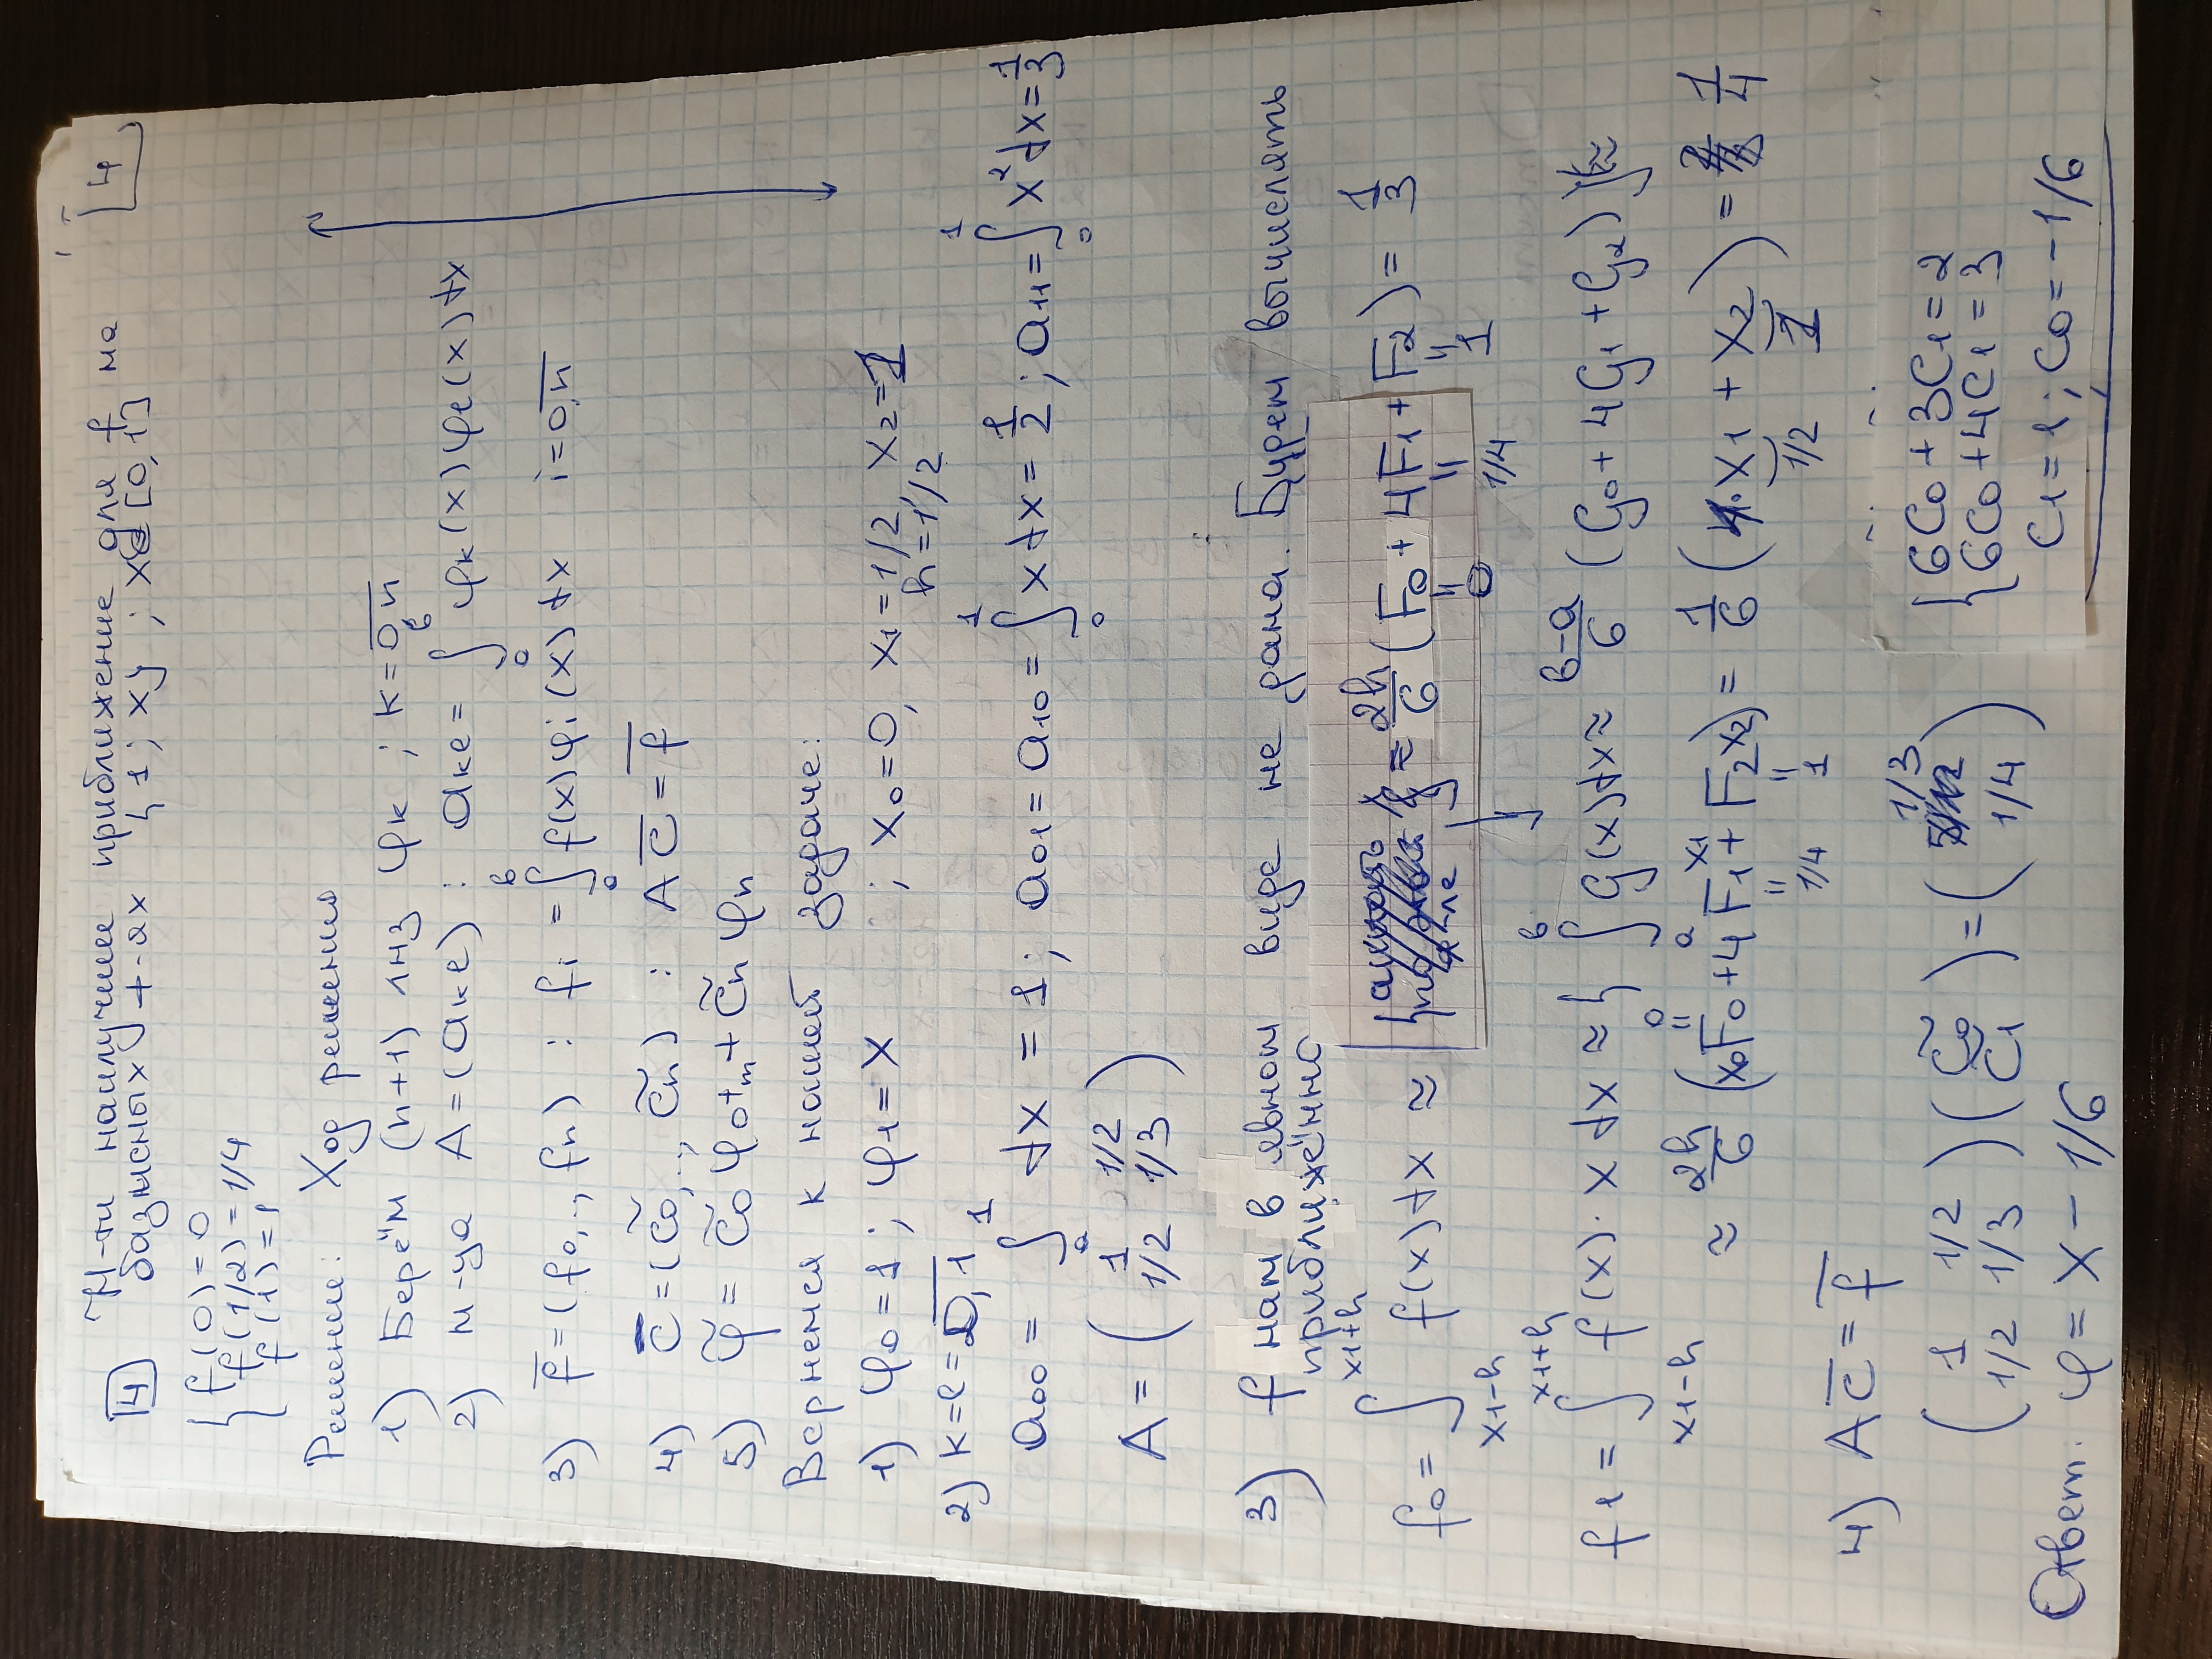 4 Н-ти наилучшее приближение для f на
базисных ф-ях {1; x}; x∈[0,1]
[4]
{ f(0) = 0
f(1/2) = 1/4
f(1) = 1
Решение: Ход решения
1) Берём (n+1) лнз φk ; k = 0,n
2) м-ца A = (ake) : ake = ∫ₐᵇ φk(x) φe(x) dx
3) f = (f0,.., fn) : fi = ∫ₐᵇ f(x) φi(x) dx i = 0,n
4) c̄ = (c̃0,..; c̃n) : A c̄ = f̄
5) φ̃ = c̃0 φ0 + ... + c̃n φn
Вернемся к нашей задаче:
1) φ0 = 1 ; φ1 = x ; x0 = 0, x1 = 1/2 x2 = 1
h = 1/2
2) k = e = 0,1
a00 = ∫₀¹ dx = 1; a01 = a10 = ∫₀¹ x dx = 1/2 ; a11 = ∫₀¹ x² dx = 1/3
A = ( 1 1/2
1/2 1/3 )
3) f нам в явном виде не дана. Будем вычислять
приближённо
f0 = ∫ f(x) dx ≈ = 2h/6 (F0 + 4F1 + F2) = 1/3
x1-h x1+h 0 1/4 1
f1 = ∫ f(x) · x dx ≈ { ∫ₐᵇ G(x) dx ≈ b-a/6 (G0 + 4G1 + G2) } ≈
x1-h x1+h
≈ 2h/6 (x0F0 + 4F1x1 + F2x2) = 1/6 (x1 + x2) = 1/4
0 1/4 1 1/2 1
4) A c̄ = f̄
( 1 1/2
1/2 1/3 ) ( c̃0
c1 ) = ( 1/3
1/4 )
{ 6c0 + 3c1 = 2
6c0 + 4c1 = 3
c1 = 1 ; c0 = -1/6
Ответ: φ = x - 1/6